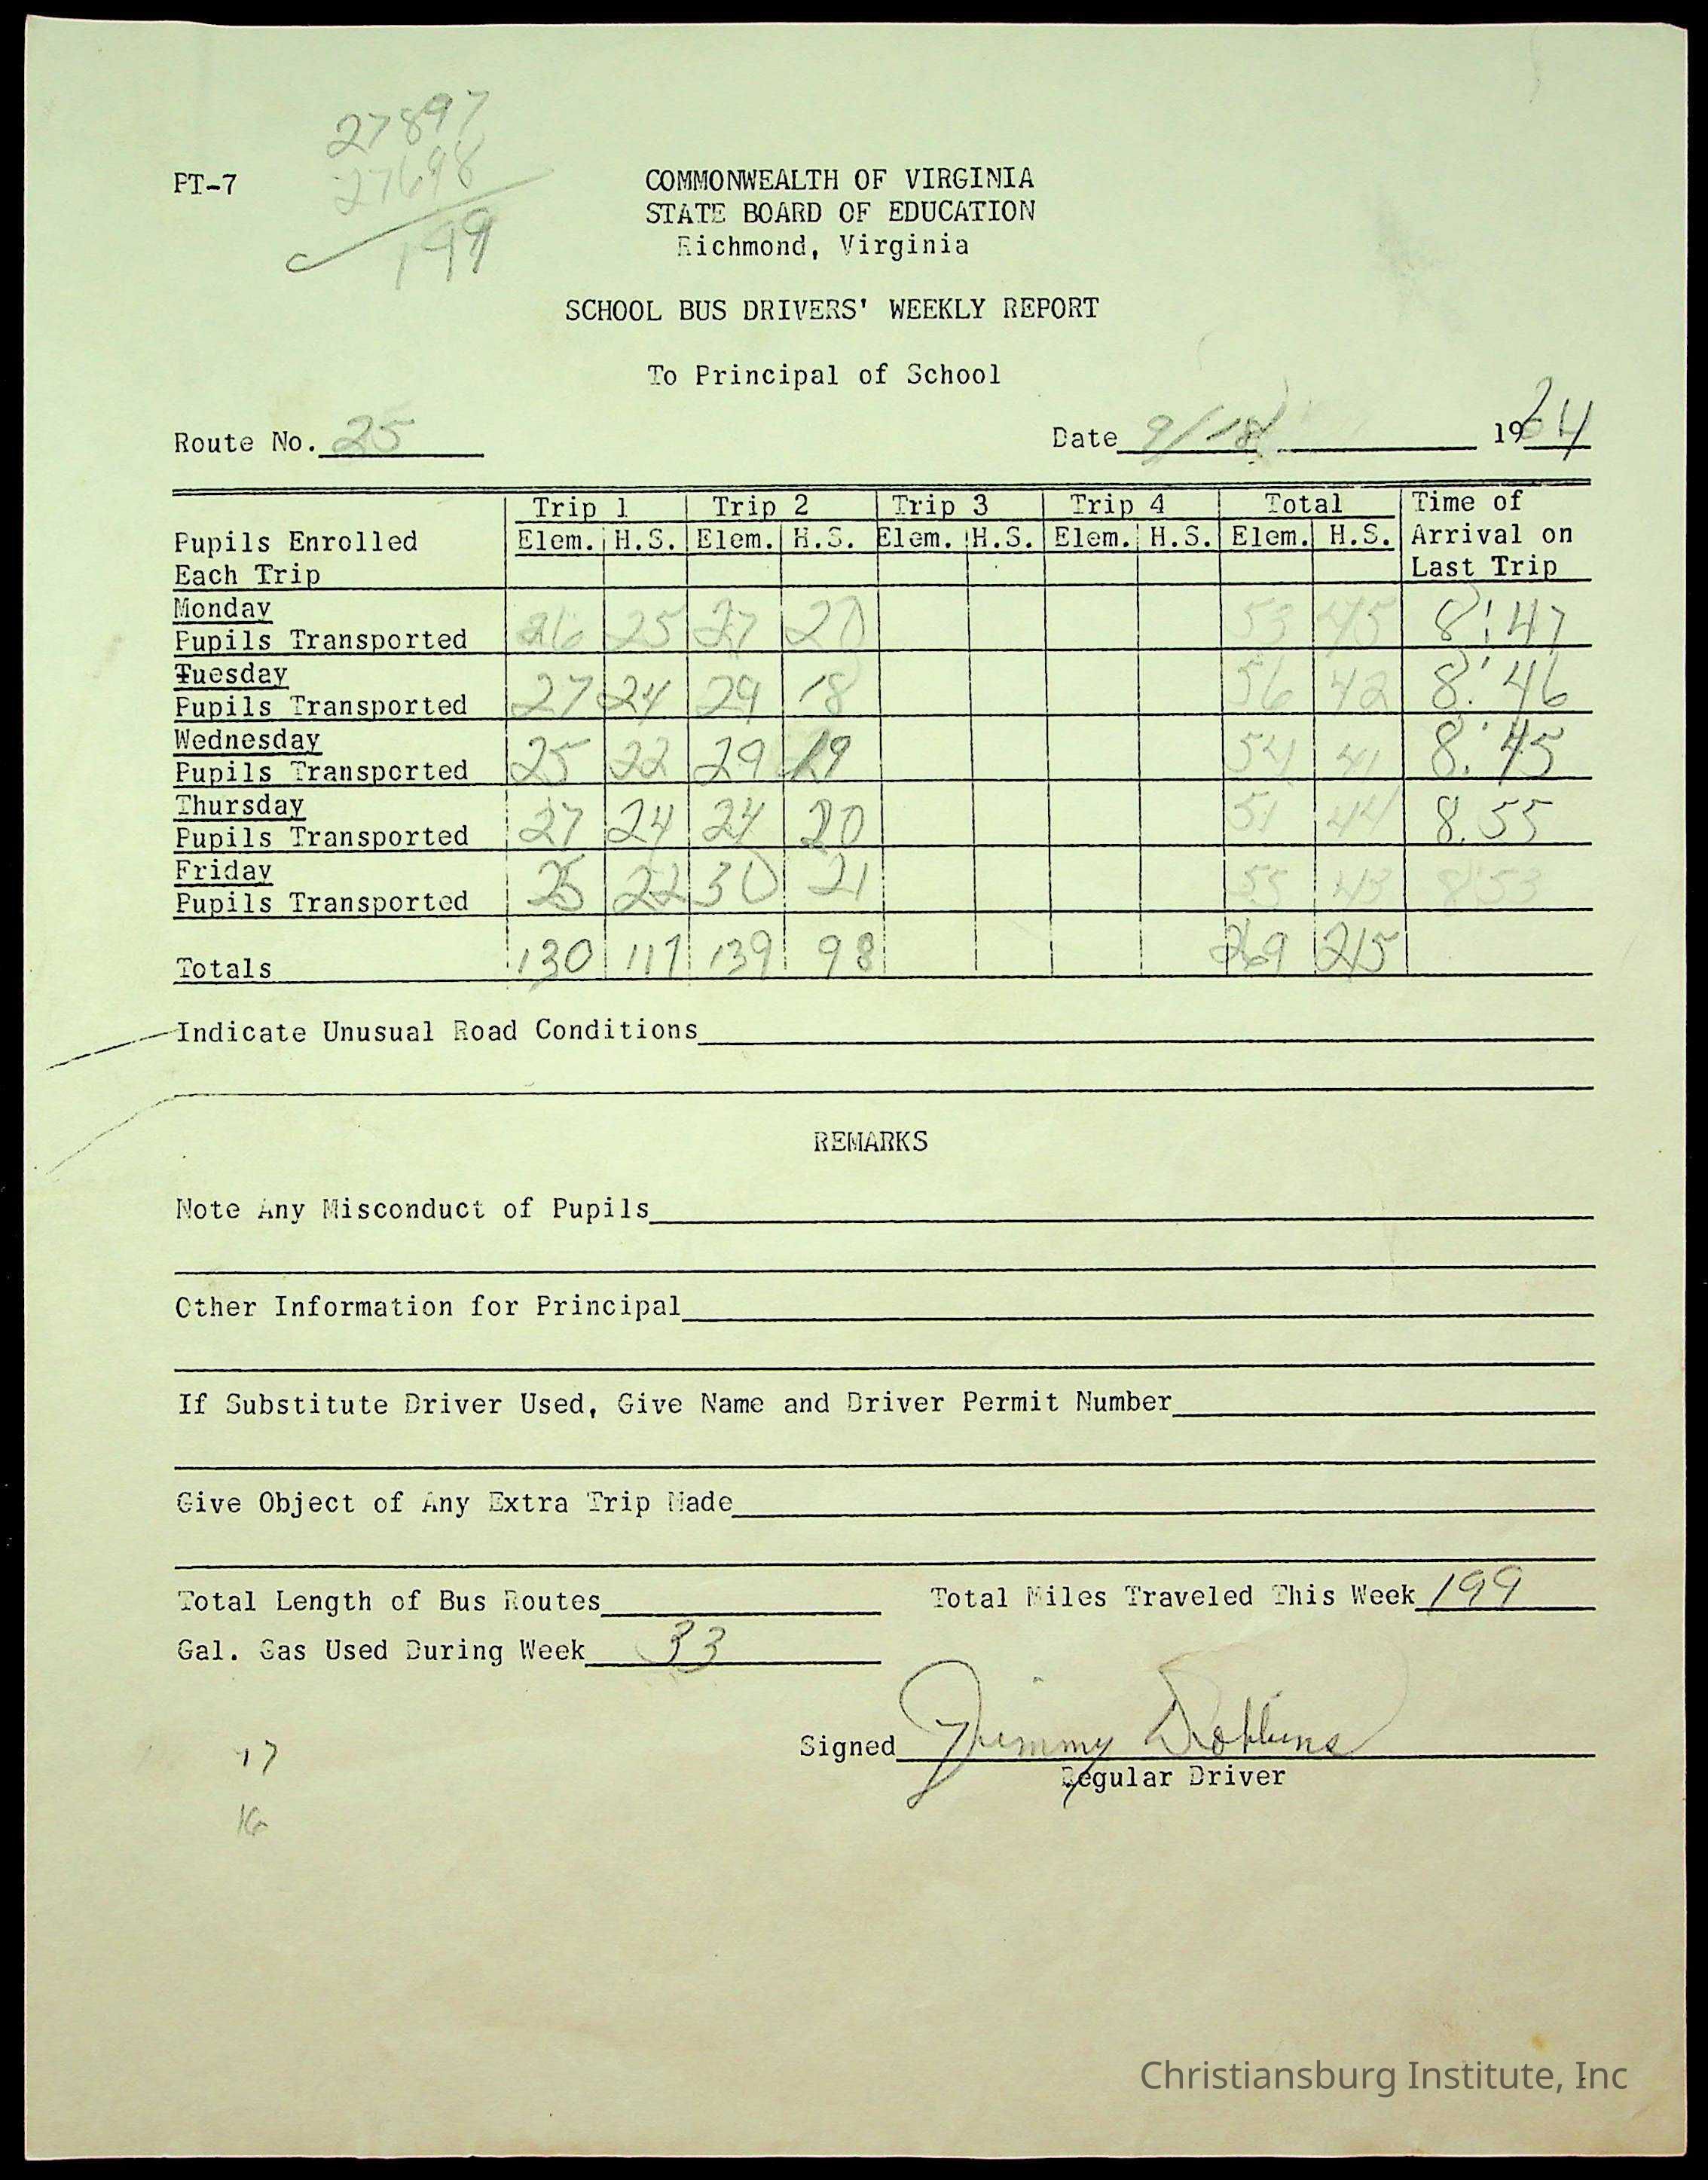 27897
27698
199
PT-7
COMMONWEALTH OF VIRGINIA
STATE BOARD OF EDUCATION
Richmond, Virginia
SCHOOL BUS DRIVERS' WEEKLY REPORT
To Principal of School
Route No. 25 Date 9/18 1964
Trip 1 Trip 2 Trip 3 Trip 4 Total Time of
Pupils Enrolled Elem. H.S. Elem. H.S. Elem. H.S. Elem. H.S. Elem. H.S. Arrival on
Each Trip Last Trip
Monday
Pupils Transported 26 25 27 20 53 45 8:47
Tuesday
Pupils Transported 27 24 29 18 56 42 8:46
Wednesday
Pupils Transported 25 22 29 19 54 41 8:45
Thursday
Pupils Transported 27 24 24 20 51 44 8.55
Friday
Pupils Transported 25 22 30 21 55 43 8:53
Totals 130 117 139 98 269 215
Indicate Unusual Road Conditions
REMARKS
Note Any Misconduct of Pupils
Other Information for Principal
If Substitute Driver Used, Give Name and Driver Permit Number
Give Object of Any Extra Trip Made
Total Length of Bus Routes Total Miles Traveled This Week 199
Gal. Gas Used During Week 33
Signed Jimmy Dobbins
Regular Driver
17
16
Christiansburg Institute, Inc